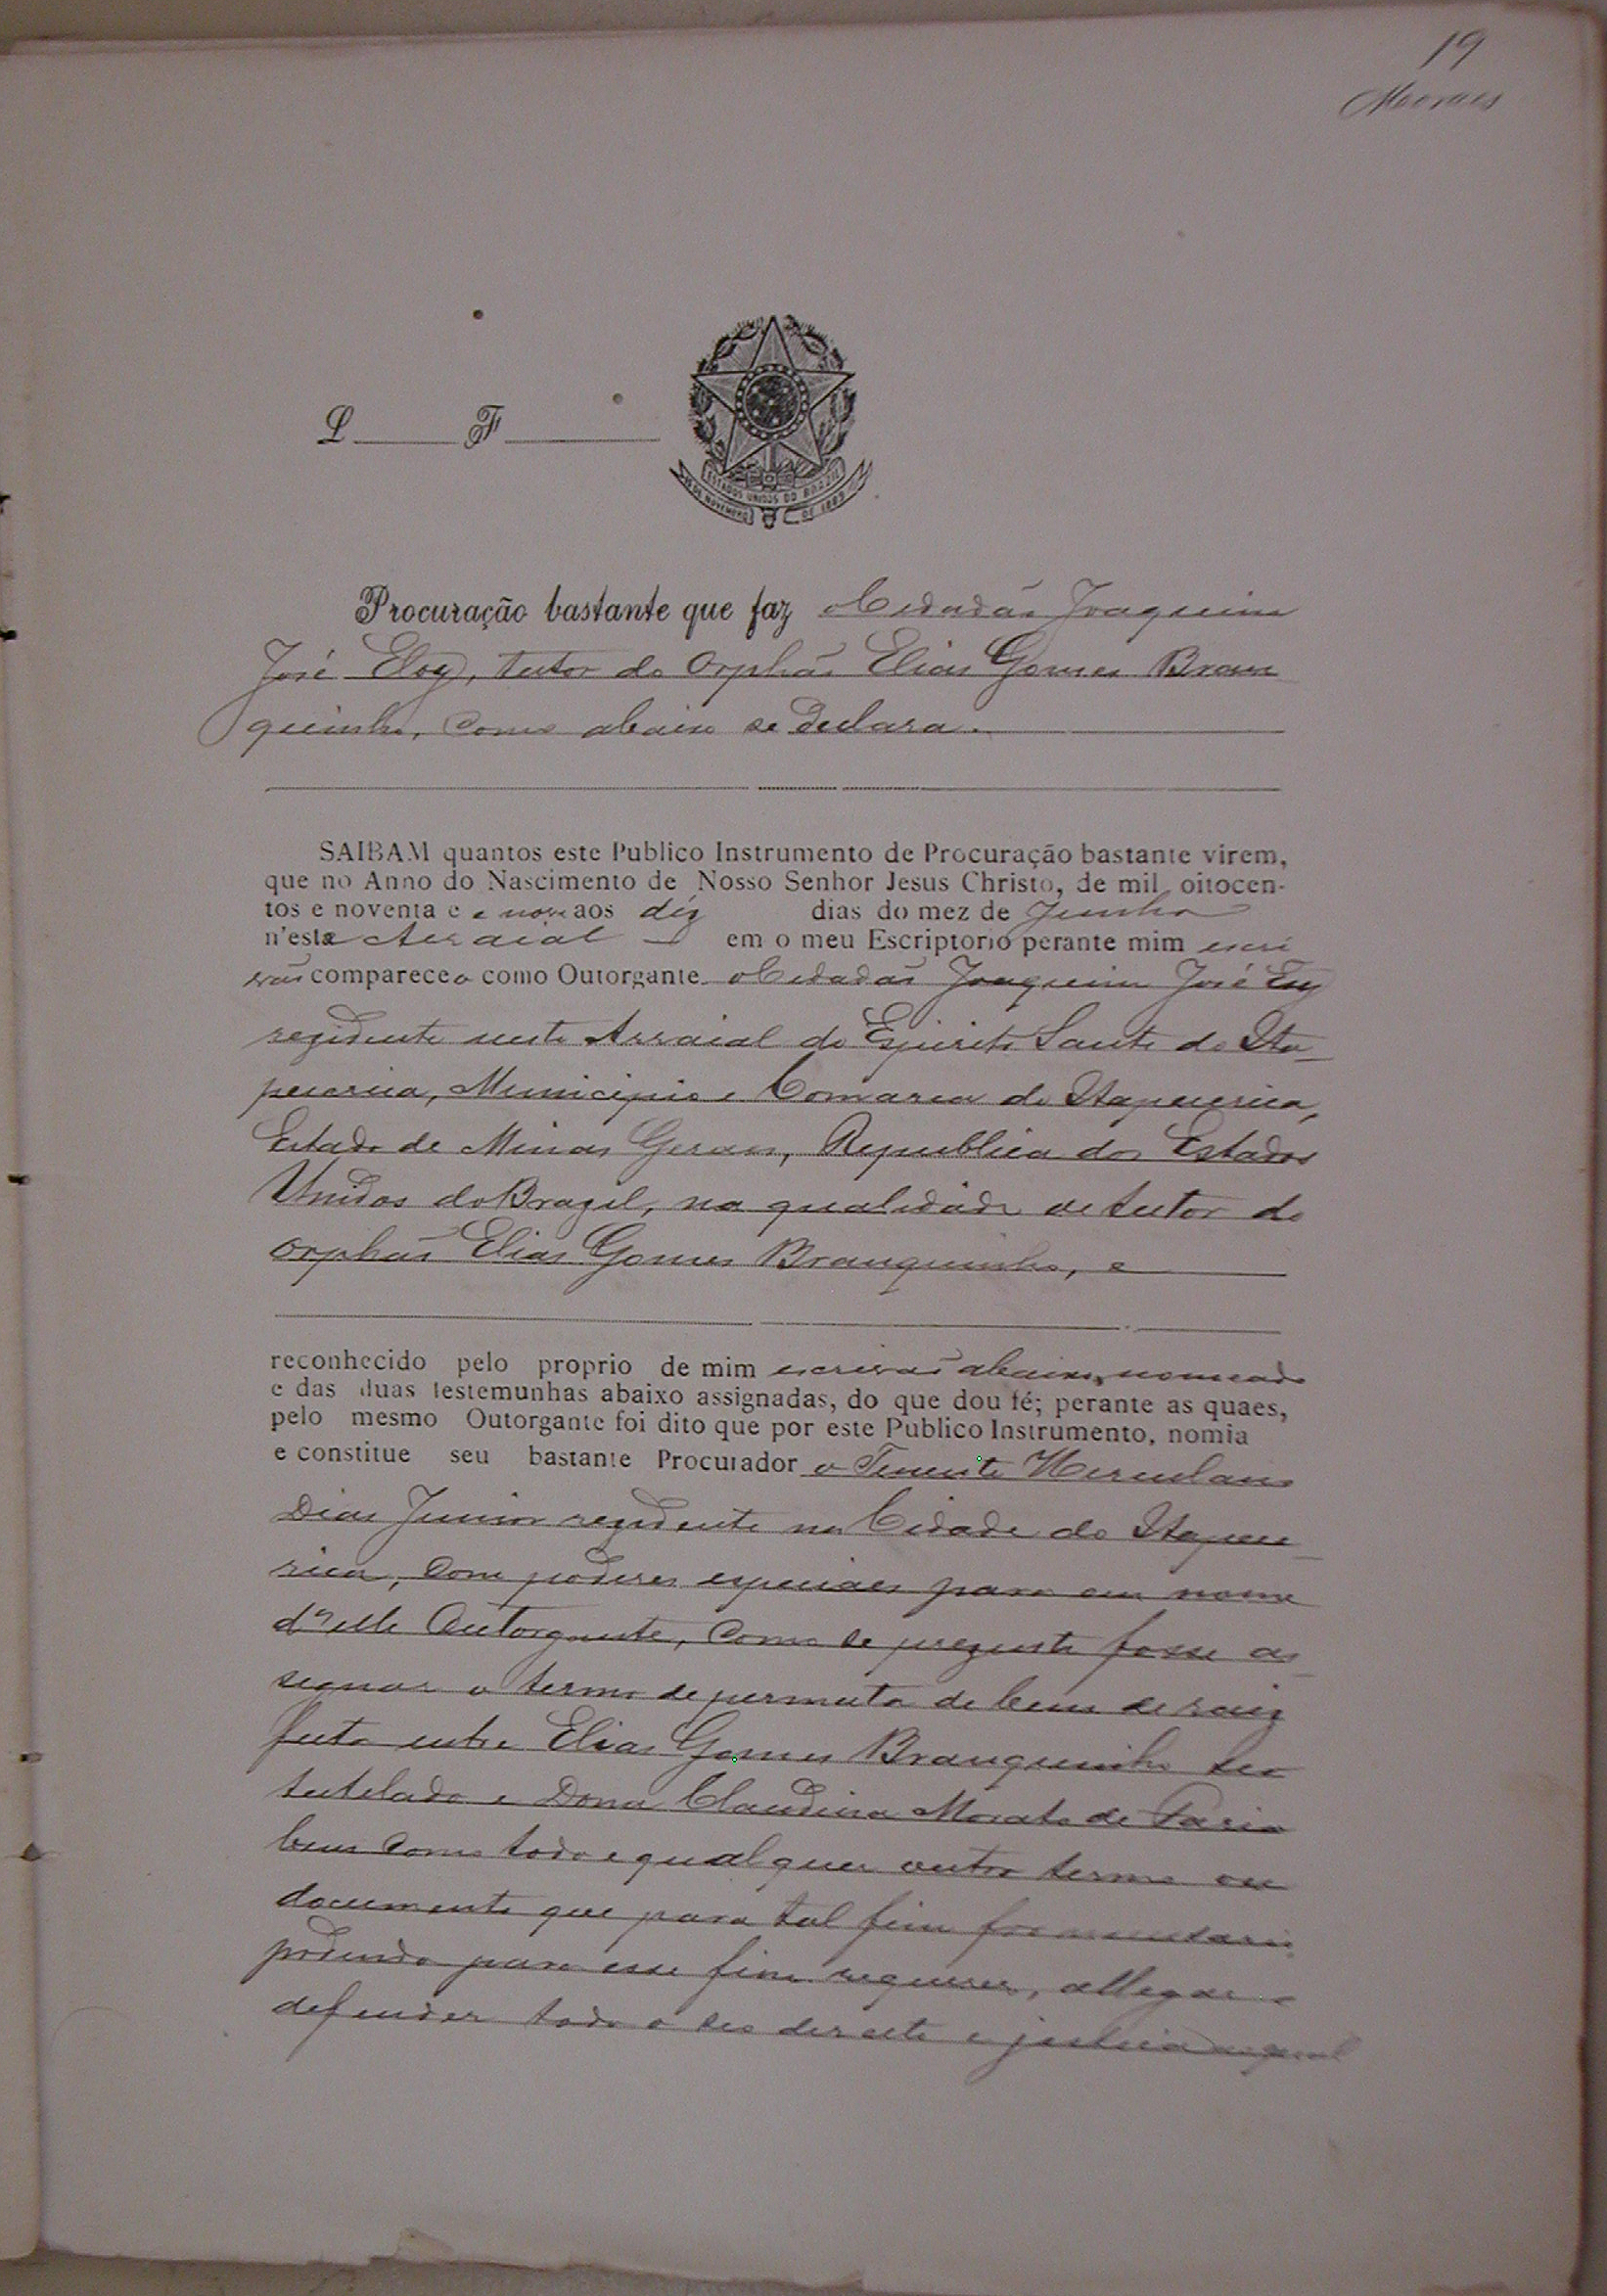 19
Moraes
L F
ESTADOS UNIDOS DO BRAZIL
15 DE NOVEMBRO DE 1889
Procuração bastante que faz o Cidadão Joaquim
José Eloy, tutor do Orphão Elias Gomes Bran
quinho, como abaixo se declara.
SAIBAM quantos este Publico Instrumento de Procuração bastante virem,
que no Anno do Nascimento de Nosso Senhor Jesus Christo, de mil oitocen-
tos e noventa e e nove aos déz dias do mez de Junho
n'este Arraial em o meu Escriptorio perante mim escri
vão compareceo como Outorgante o Cidadão Joaquim José Eloy
rezidente neste Arraial do Espirito Santo do Ita-
pecerica, Municipio e Comarca de Itapecerica,
Estado de Minas Geraes, Republica dos Estados
Unidos do Brazil, na qualidade de tutor do
Orphão Elias Gomes Branquinho, e
reconhecido pelo proprio de mim escrivão abaixo nomeado
e das duas testemunhas abaixo assignadas, do que dou fé; perante as quaes,
pelo mesmo Outorgante foi dito que por este Publico Instrumento, nomia
e constitue seu bastante Procurador o Tenente Herculano
Dias Junior rezidente na Cidade de Itapece-
rica, com poderes especiaes para em nome
d'elle Outorgante, como se prezente fosse as-
signar o termo de permuta de bens de raiz
feita entre Elias Gomes Branquinho seo
tutelado e Dona Claudina Morato de Faria
bem como todo e qualquer outro termo ou
documento que para tal fim for necessario
podendo para esse fim requerer, allegar e
defender todo o seo direito e justiça em geral